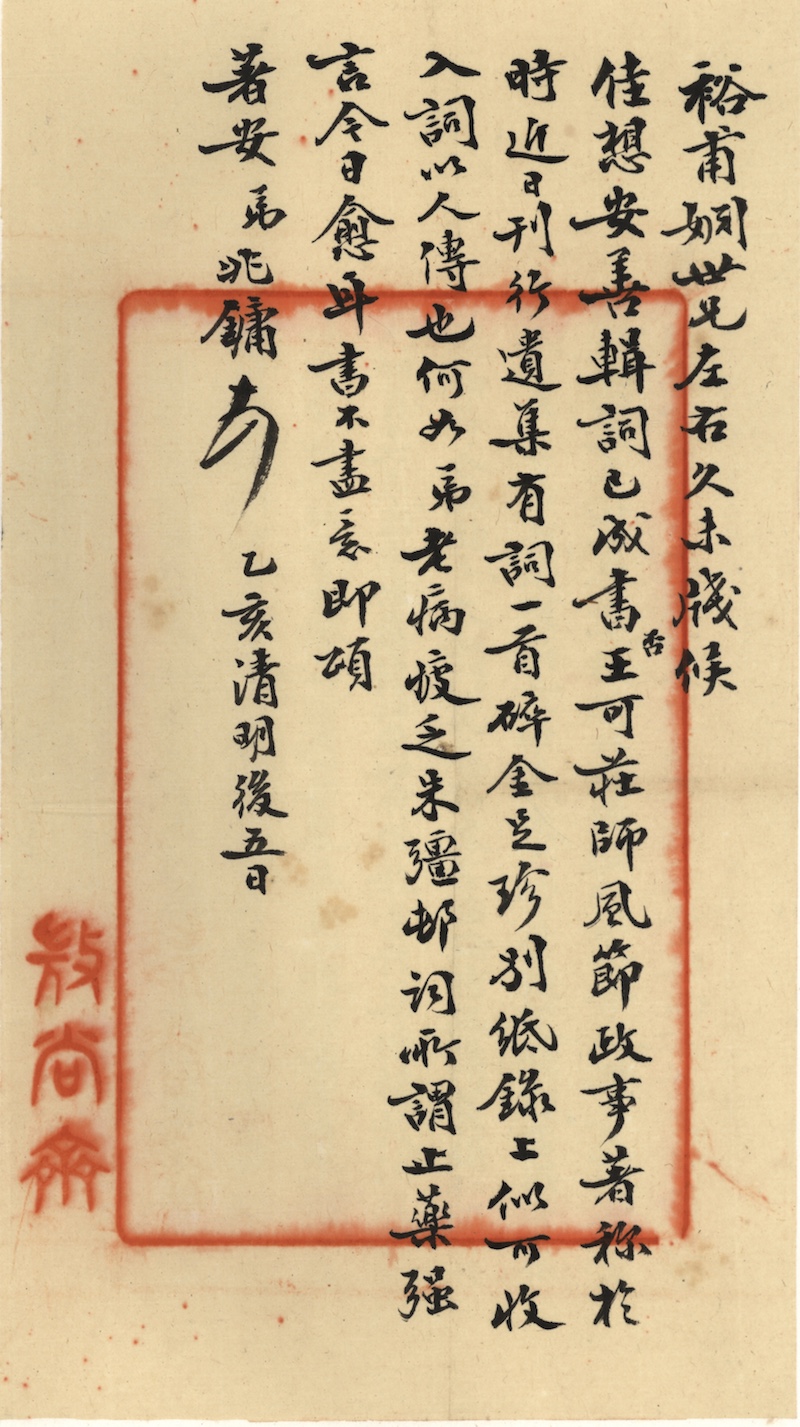 裕甫姻世兄左右久未牋候
佳想安善輯詞已成書否王可莊師風節政事著稱於
時近日刊行遺集有詞一首碎金足珍別紙錄上似可收
入詞以人傳也何如弟老病疲乏朱彊邨詞所謂止藥強
言今日愈耳書不盡意即頌
著安 弟兆鏞
乙亥清明後五日
尚齋